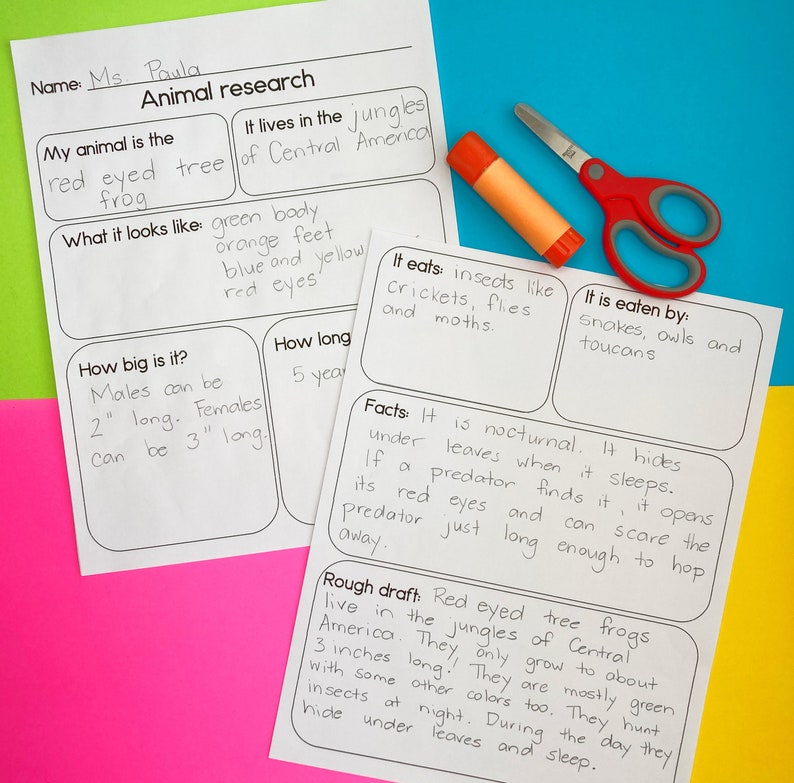 Name: Ms. Paula
Animal research
My animal is the
red eyed tree
frog
It lives in the jungles
of Central America
What it looks like: green body
orange feet
blue and yellow
red eyes
How big is it?
Males can be
2" long. Females
can be 3" long.
How long
5 year
It eats: insects like
crickets, flies
and moths.
It is eaten by:
snakes, owls and
toucans
Facts: It is nocturnal. It hides
under leaves when it sleeps.
If a predator finds it, it opens
its red eyes and can scare the
predator just long enough to hop
away.
Rough draft: Red eyed tree frogs
live in the jungles of Central
America. They only grow to about
3 inches long! They are mostly green
with some other colors too. They hunt
insects at night. During the day they
hide under leaves and sleep.